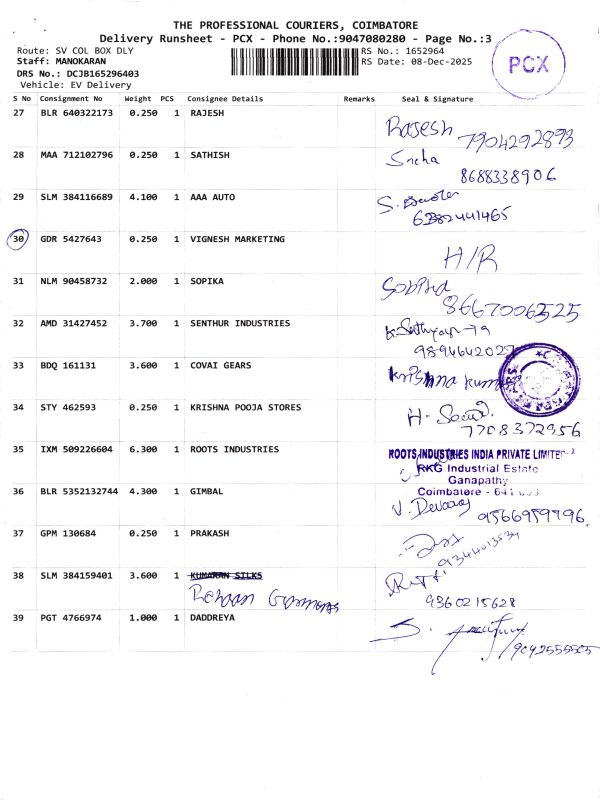 THE PROFESSIONAL COURIERS, COIMBATORE
Delivery Runsheet - PCX - Phone No.:9047080280 - Page No.:3
Route: SV COL BOX DLY
RS No.: 1652964
Staff: MANOKARAN
RS Date: 08-Dec-2025
DRS No.: DCJB165296403
Vehicle: EV Delivery
PCX
S No Consignment No Weight PCS Consignee Details Remarks Seal & Signature
27 BLR 640322173 0.250 1 RAJESH
Rajesh 7904292893
28 MAA 712102796 0.250 1 SATHISH
Sneha
8688338906
29 SLM 384116689 4.100 1 AAA AUTO
S.
30 GDR 5427643 0.250 1 VIGNESH MARKETING
H/R
31 NLM 90458732 2.000 1 SOPIKA
8667006525
32 AMD 31427452 3.700 1 SENTHUR INDUSTRIES
33 BDQ 161131 3.600 1 COVAI GEARS
Krishna Kumar
34 STY 462593 0.250 1 KRISHNA POOJA STORES
H.
7708372956
35 IXM 509226604 6.300 1 ROOTS INDUSTRIES
ROOTS INDUSTRIES INDIA PRIVATE LIMITED
RKG Industrial Estate
Ganapathy
Coimbatore - 641
36 BLR 5352132744 4.300 1 GIMBAL
V. Devaraj
9566959796
37 GPM 130684 0.250 1 PRAKASH
38 SLM 384159401 3.600 1 KUMARAN SILKS
Rehaan Garments
9360215628
39 PGT 4766974 1.000 1 DADDREYA
S.